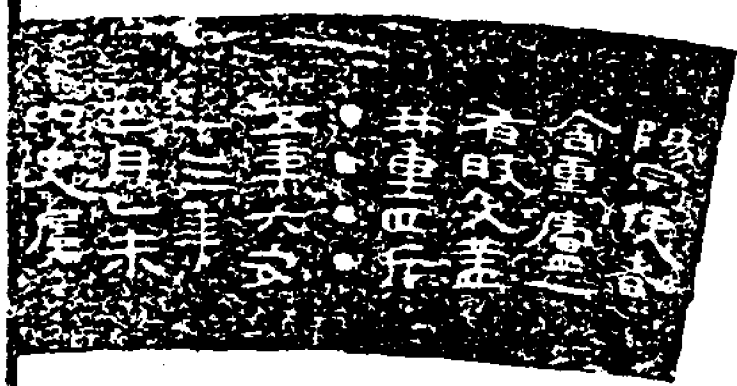 陽泉使者
舍熏盧一
有般及蓋
并重四斤
••••
五年六安
十三年
正月乙未
內史屬